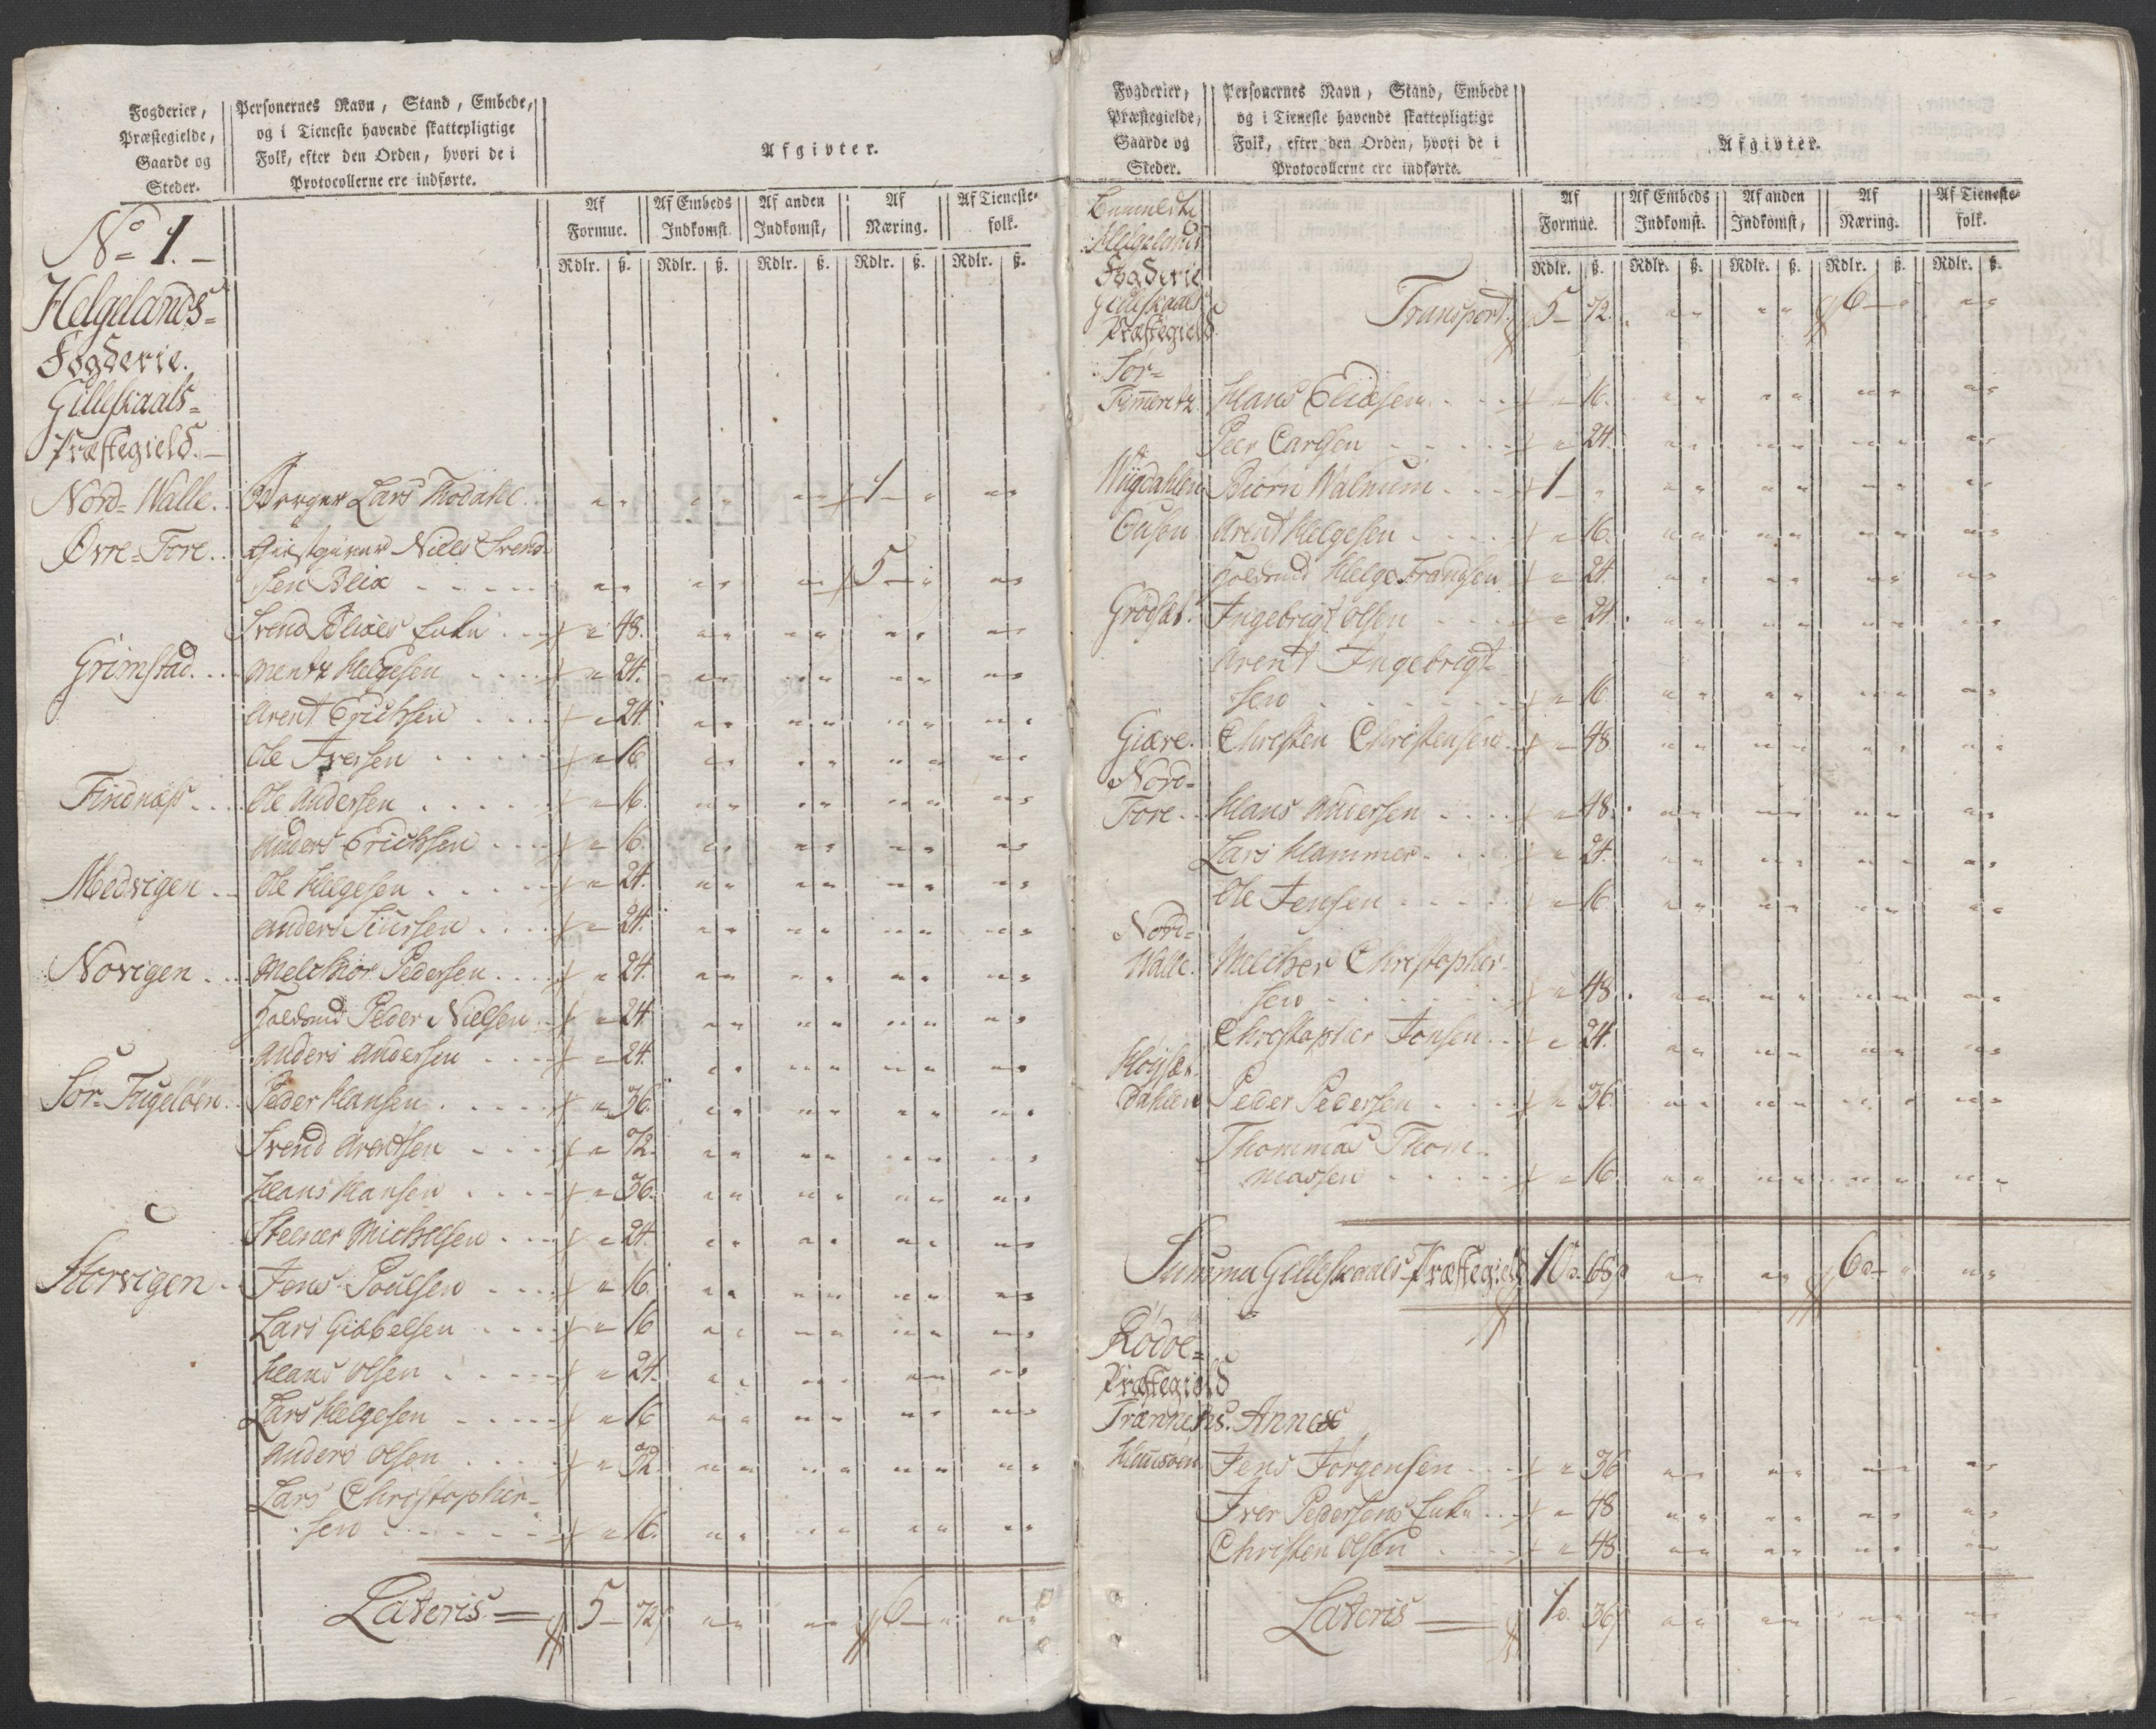 Fogderier,
Præstegielde,
Gaarde og
Steder.
Personernes Navn, Stand, Embede,
og i Tieneste havende skattepligtige
Folk, efter den Orden, hvori de i
Protocollerne ere indførte.
Afgivter.
Af Formue. Af Embeds Indkomst. Af anden Indkomst, Af Næring. Af Tieneste- folk.
Rdlr. ß. Rdlr. ß. Rdlr. ß. Rdlr. ß. Rdlr. ß.
No 1.
Helgelands-
Fogderie.
Gilleskaals-
Præstegield.
Nord-Walle. Borger Lars Modahl. 1 -
Øvre-Fore. Giestgiver Niels Svend-
sen Blix 5 -
Svend Blixes Enke 48.
Grimstad. Mentz Helgesen 24.
Arent Erichsen 24.
Ole Iversen 16.
Findnæss. Ole Andersen 16.
Anders Erichsen 16.
Medvigen. Ole Helgesen 24.
Anders Siursen 24.
Novigen. Melchior Pedersen 24.
Peder Nielsen 24
Anders Andersen 24.
Sør-Fugeløen. Peder Hansen 36.
Svend Arentsen 72.
Hans Hansen 36.
Michelsen 24.
Storvigen. Jens Poulsen 16
Lars Giæbelsen 16
Hans Olsen 24.
Lars Helgesen 16
Anders Olsen 32
Lars Christopher-
sen 16.
Lateris 5 - 72 6 -
Fogderier,
Præstegielde,
Gaarde og
Steder.
Personernes Navn, Stand, Embede
og i Tieneste havende skattepligtige
Folk, efter den Orden, hvori de i
Protocollerne ere indførte.
Afgivter.
Af Formue. Af Embeds Indkomst. Af anden Indkomst, Af Næring. Af Tieneste- folk.
Rdlr. ß. Rdlr. ß. Rdlr. ß. Rdlr. ß. Rdlr. ß.
Helgelands
Fogderie
Gilleskaals
Præstegield
Transport 5 - 72. 6 -
Sør-
Hans Eliasen 16.
Peer Carlsen 24.
Wiigdahlen Biørn Walnum 1 -
Arent Helgesen 16.
Helge Frandsen 24.
Grødsæt. Ingebrigt Olsen 24.
Arent Ingebrigt-
sen 16
Giære. Christen Christensen 48.
Nord-
Fore. Hans Andersen 48.
Lars Hammer 24.
Ole Jensen 16
Nord-
Walle. Melcher Christopher-
sen 48.
Christopher Jonsen 24.
Høysæt-
dahlen Peder Pedersen 36.
Thommas Thom-
massen 16.
Summa Gilleskaals Præstegield 10 68 6 -
Rødøe-
Præstegield
Trænnens Annex
Jens Jørgensen 36
Iver Pedersens Enke 48
Christen Olsen 48
Lateris 1 36